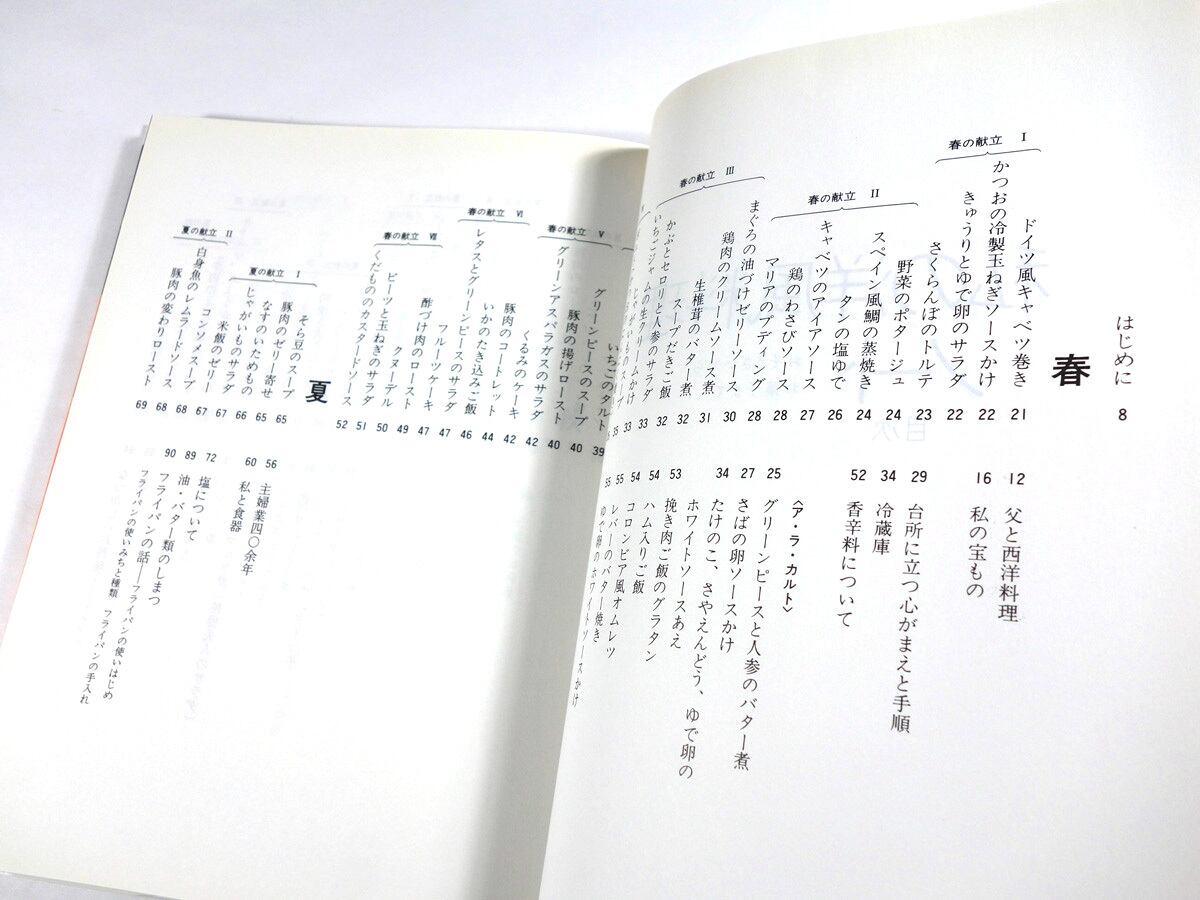 はじめに 8
春
春の献立 I
ドイツ風キャベツ巻き 21
かつおの冷製玉ねぎソースかけ 22
きゅうりとゆで卵のサラダ 22
さくらんぼのトルテ 23
春の献立 II
野菜のポタージュ 24
スペイン風鯛の蒸焼き 24
タンの塩ゆで 26
キャベツのアイアソース 27
鶏のわさびソース 28
マリアのプディング 28
春の献立 III
まぐろの油づけゼリーソース 30
鶏肉のクリームソース煮 31
生椎茸のバター煮 32
スープだきご飯 32
かぶとセロリと人参のサラダ 33
いちごジャムの生クリームかけ 33
12 父と西洋料理
16 私の宝もの
29 台所に立つ心がまえと手順
34 冷蔵庫
52 香辛料について
〈ア・ラ・カルト〉
25 グリーンピースと人参のバター煮
27 さばの卵ソースかけ
34 たけのこ、さやえんどう、ゆで卵の
ホワイトソースあえ
53 挽き肉ご飯のグラタン
54 ハム入りご飯
54 コロンビア風オムレツ
55 レバーのバター焼き
55 ゆで卵のホワイトソースかけ
春の献立 V
いちごのタルト 39
グリーンピースのスープ 40
豚肉の揚げロースト 40
グリーンアスパラガスのサラダ 42
くるみのケーキ 42
春の献立 VI
豚肉のコートレット 44
いかのたき込みご飯 46
レタスとグリーンピースのサラダ 47
フルーツケーキ 47
春の献立 VII
酢づけ肉のロースト 49
クヌーデル 50
ビーツと玉ねぎのサラダ 51
くだもののカスタードソース 52
夏
夏の献立 I
そら豆のスープ 65
豚肉のゼリー寄せ 65
なすのいためもの 66
じゃがいものサラダ 67
米飯のゼリー 67
夏の献立 II
コンソメスープ 68
白身魚のレムラードソース 68
豚肉の変わりロースト 69
56 主婦業四〇余年
60 私と食器
72 塩について
89 油・バター類のしまつ
90 フライパンの話――フライパンの使いはじめ
フライパンの使いみちと種類 フライパンの手入れ